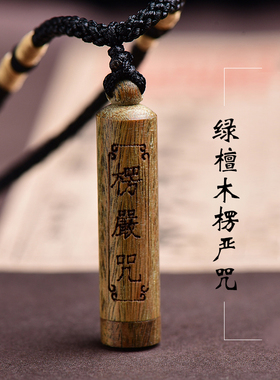 绿檀木楞严咒
楞嚴咒